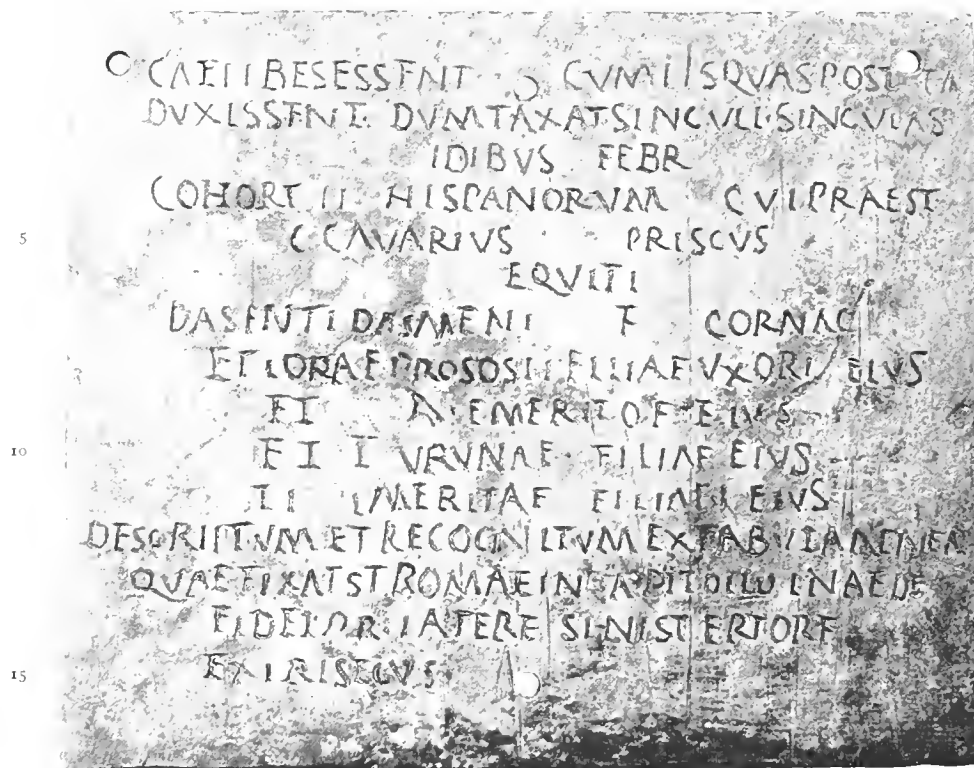 CAELIBESESSENT CVMIISQVASPOSTEA
DVXISSENT DVMTAXATSINGVLI·SINGVLAS
IDIBVS FEBR
COHORT II HISPANORVM CVIPRAEST
5 C CAVARIVS PRISCVS
EQVITI
DASENTI DASMENI F CORNAC
ET IORAE PROSOSII FILIAE VXORI EIVS
ET EMERITO F EIVS
10 ET TVRVNAE FILIAE EIVS
ET EMERITAE FILIAE EIVS
DESCRIPTVM ET RECOGNITVM EX TABVLA AENEA
QVAE FIXA EST ROMAE IN CAPITOLIO IN AEDE
FIDEI P R LATERE SINISTERIORE
15 EXTRISECVS